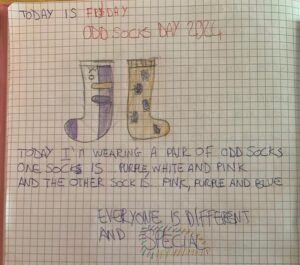 TODAY IS FRIDAY
ODD SOCKS DAY 2024
TODAY I'M WEARING A PAIR OF ODD SOCKS
ONE SOCKS IS PURPLE, WHITE AND PINK
AND THE OTHER SOCK IS PINK, PURPLE AND BLUE
EVERYONE IS DIFFERENT
AND SPECIAL